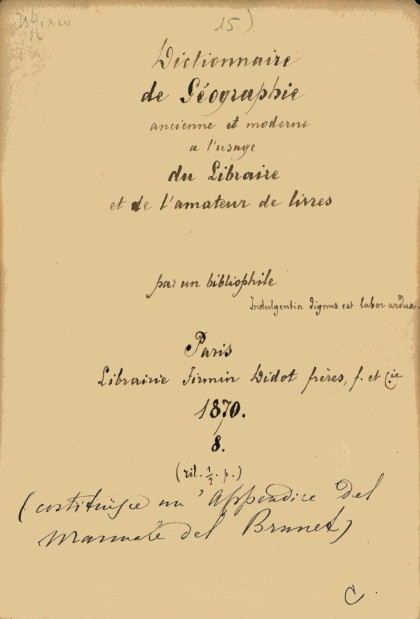 15)
Dictionnaire
de Géographie
ancienne et moderne
a l'usage
du Libraire
et de l'amateur de livres
par un bibliophile
Indulgentia dignus est labor arduus.
Paris
Librairie Firmin Didot frères, f. et Cie
1870.
8.
(ril. ½. p.)
(costituisce un' Appendice del
Manuale del Brunet)
C.